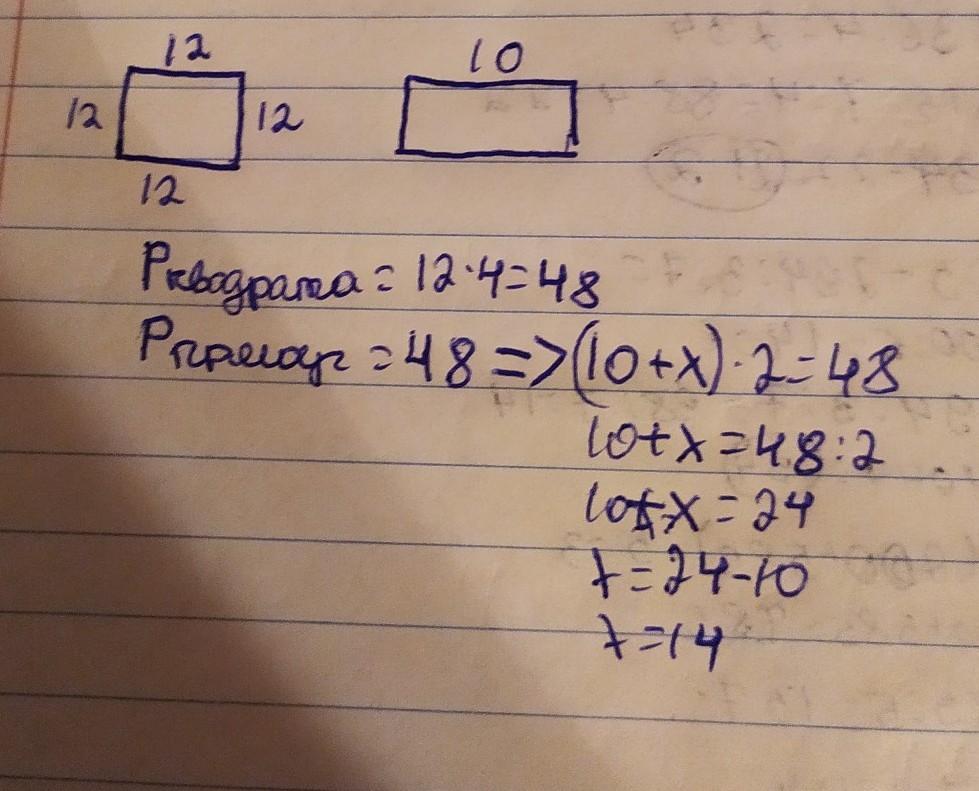 12
10
12
12
12
Pквадрата = 12·4=48
Pпрямоуг = 48 => (10+x)·2=48
10+x=48:2
10+x=24
x=24-10
x=14